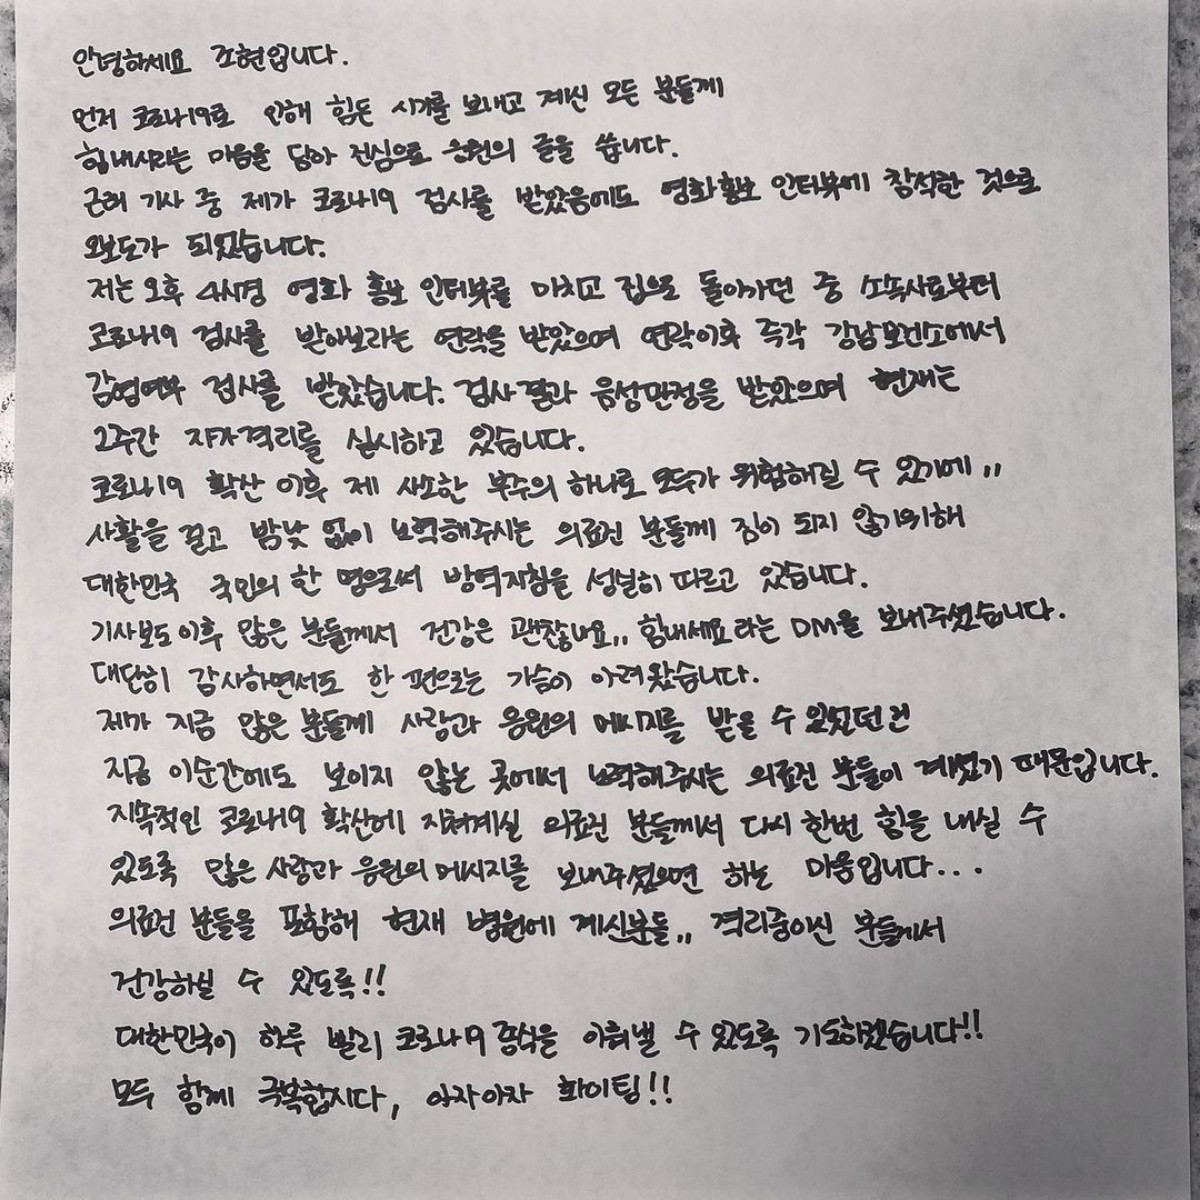 안녕하세요 조현입니다.
먼저 코로나19로 인해 힘든 시기를 보내고 계신 모든 분들께
힘내시라는 마음을 담아 진심으로 응원의 글을 씁니다.
근래 기사 중 제가 코로나19 검사를 받았음에도 영화홍보 인터뷰에 참석한 것으로
오보도가 되었습니다.
저는 오후 4시경 영화 홍보 인터뷰를 마치고 집으로 돌아가던 중 소속사로부터
코로나19 검사를 받아보라는 연락을 받았으며 연락이후 즉각 강남보건소에서
감염여부 검사를 받았습니다. 검사결과 음성판정을 받았으며 현재는
2주간 자가격리를 실시하고 있습니다.
코로나19 확산 이후 제 사소한 부주의 하나로 모두가 위험해질 수 있기에,,
사활을 걸고 밤낮 없이 노력해주시는 의료진 분들께 짐이 되지 않기위해
대한민국 국민의 한 명으로써 방역지침을 성실히 따르고 있습니다.
기사보도이후 많은 분들께서 건강은 괜찮냐요,, 힘내세요라는 DM을 보내주셨습니다.
대단히 감사하면서도 한 편으로는 가슴이 아려왔습니다.
제가 지금 많은 분들께 사랑과 응원의 메시지를 받을 수 있었던건
지금 이순간에도 보이지 않는 곳에서 노력해주시는 의료진 분들이 계셨기 때문입니다.
지속적인 코로나19 확산에 지쳐계실 의료진 분들께서 다시 한번 힘을 내실 수
있도록 많은 사랑과 응원의 메시지를 보내주셨으면 하는 마음입니다...
의료진 분들을 포함해 현재 병원에 계신분들,, 격리중이신 분들께서
건강하실 수 있도록!!
대한민국이 하루 빨리 코로나19 종식을 이뤄낼 수 있도록 기도하겠습니다!!
모두 함께 극복합시다, 아자아자 화이팅!!